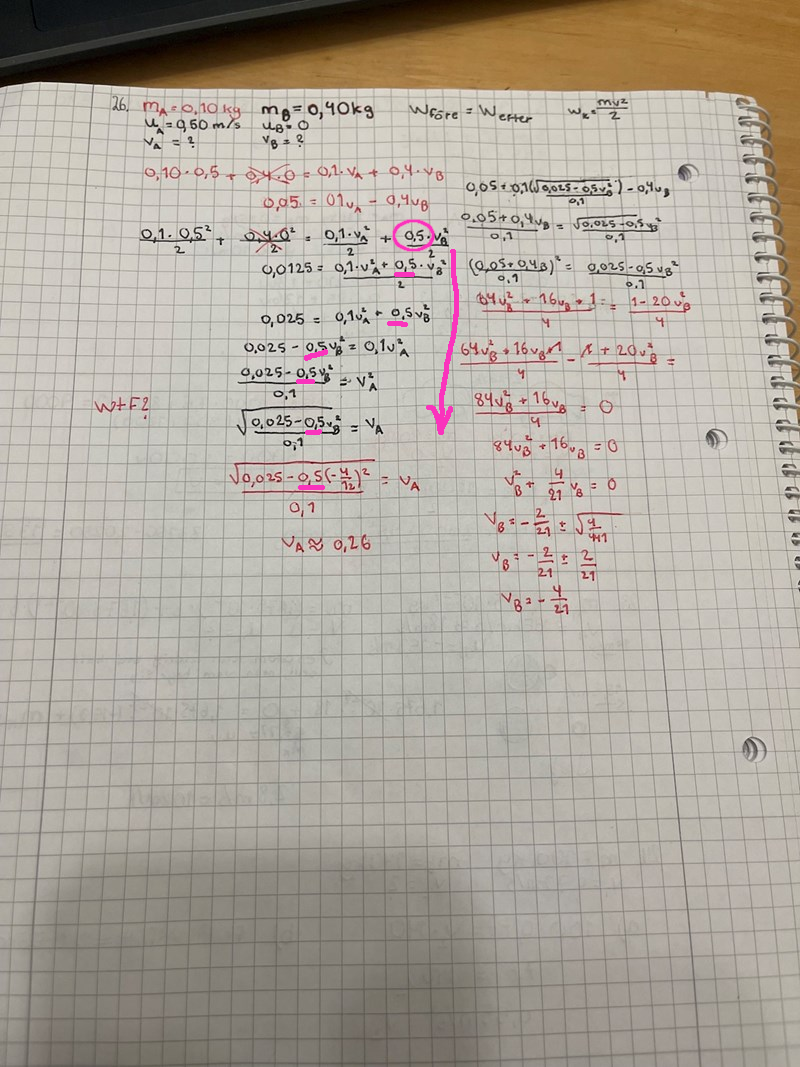 26. m_A = 0,10 kg m_B = 0,40 kg Wföre = Wefter w_k = mv²/2
u_A = 0,50 m/s u_B = 0
v_A = ? v_B = ?
0,10 · 0,5 + 0,4 · 0 = 0,1 · v_A + 0,4 · v_B
0,05 = 01v_A - 0,4v_B
0,1 · 0,5²/2 + 0,4 · 0²/2 = 0,1 · v_A²/2 + 0,5 · v_B²/2
0,0125 = (0,1 · v_A² + 0,5 · v_B²)/2
0,025 = 0,1v_A² + 0,5v_B²
0,025 - 0,5v_B² = 0,1v_A²
(0,025 - 0,5v_B²)/0,1 = v_A²
wtf?
√(0,025 - 0,5v_B²)/0,1 = v_A
√(0,025 - 0,5(-4/12)²)/0,1 = v_A
v_A ≈ 0,26
0,05 + 0,1(√(0,025 - 0,5v_B²)/0,1) - 0,4v_B
(0,05 + 0,4v_B)/0,1 = √(0,025 - 0,5v_B²)/0,1
(0,05 + 0,4_B)²/0,1 = (0,025 - 0,5v_B²)/0,1
(64v_B² + 16v_B + 1)/4 = (1 - 20v_B²)/4
(64v_B² + 16v_B + 1)/4 - (1 + 20v_B²)/4 =
(84v_B² + 16v_B)/4 = 0
84v_B² + 16v_B = 0
v_B² + 4/21 v_B = 0
v_B = -2/21 ± √(4/441)
v_B = -2/21 ± 2/21
v_B = -4/21